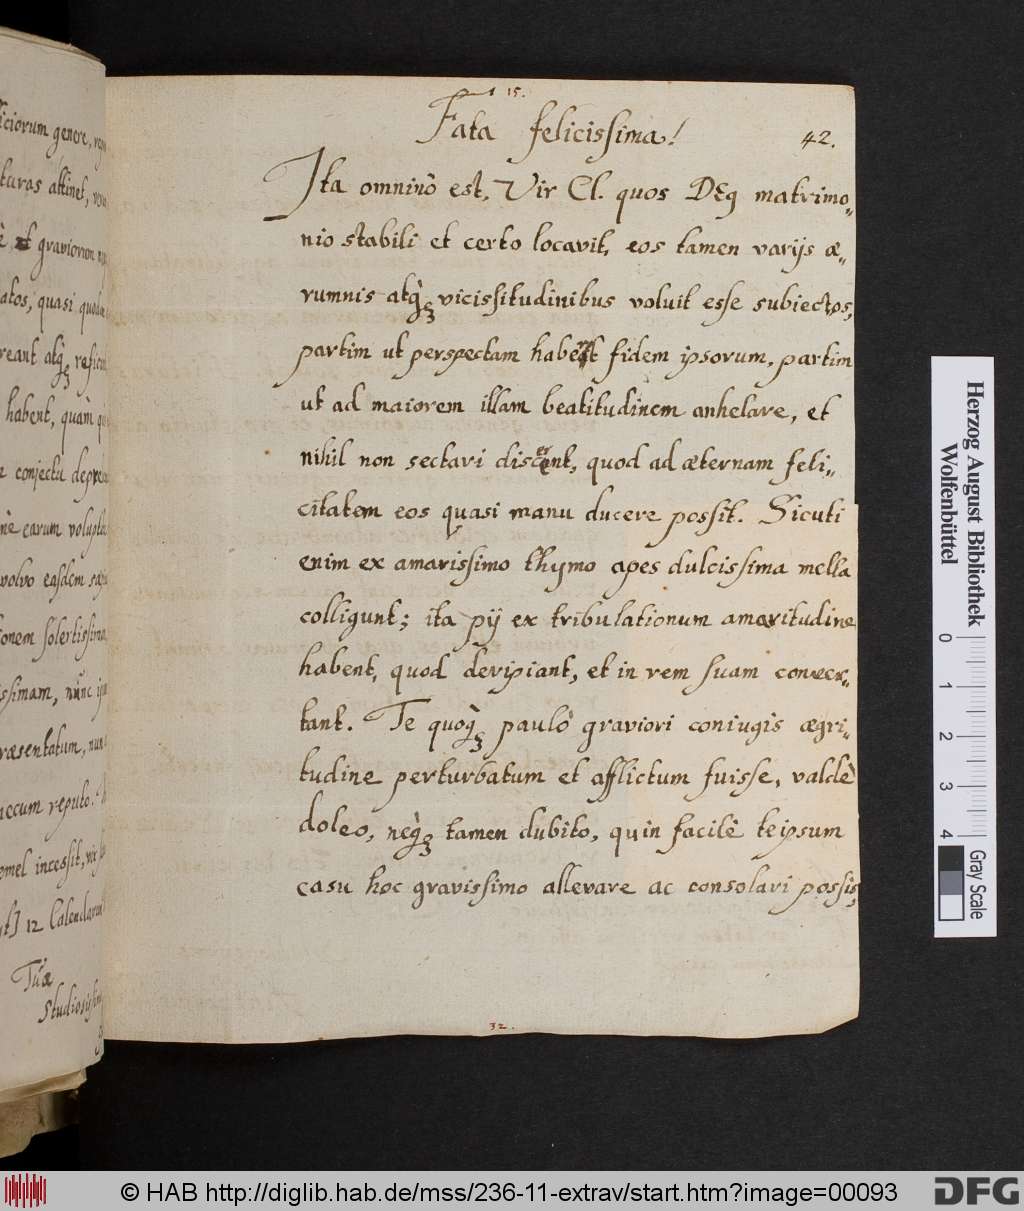 iciorum genere,
turas attinet,
et graviorum
atos, quasi
reant atq́ꝫ
habent, quàm
conjectu
earum
volvo easdem
solertissima
ssimam, nunc
ræsentatum,
mecum reputo.
incessit, vix
12 Calendarum
Tuæ
15.
Fata felicissima!
42.
Ita omninò est, Vir Cl. quos DEꝰ matrimo-
nio stabili et certo locavit, eos tamen varijs æ-
rumnis atq́ꝫ vicissitudinibus voluit esse subiectos,
partim ut perspectam habeat fidem ipsorum, partim
ut ad maiorem illam beatitudinem anhelare, et
nihil non sectari discant, quod ad æternam feli-
citatem eos quasi manu ducere possit. Sicuti
enim ex amarissimo thymo apes dulcissima mella
colligunt; ita pij ex tribulationum amaritudine
habent, quod deripiant, et in rem suam conver-
tant. Te quoq́ꝫ paulò graviori coniugis ægri-
tudine perturbatum et afflictum fuisse, valdè
doleo, neq́ꝫ tamen dubito, quin facilè teipsum
casu hoc gravissimo allevare ac consolari possis,
32.
Herzog August Bibliothek
Wolfenbüttel
0 1 2 3 4
Gray Scale
© HAB http://diglib.hab.de/mss/236-11-extrav/start.htm?image=00093
DFG